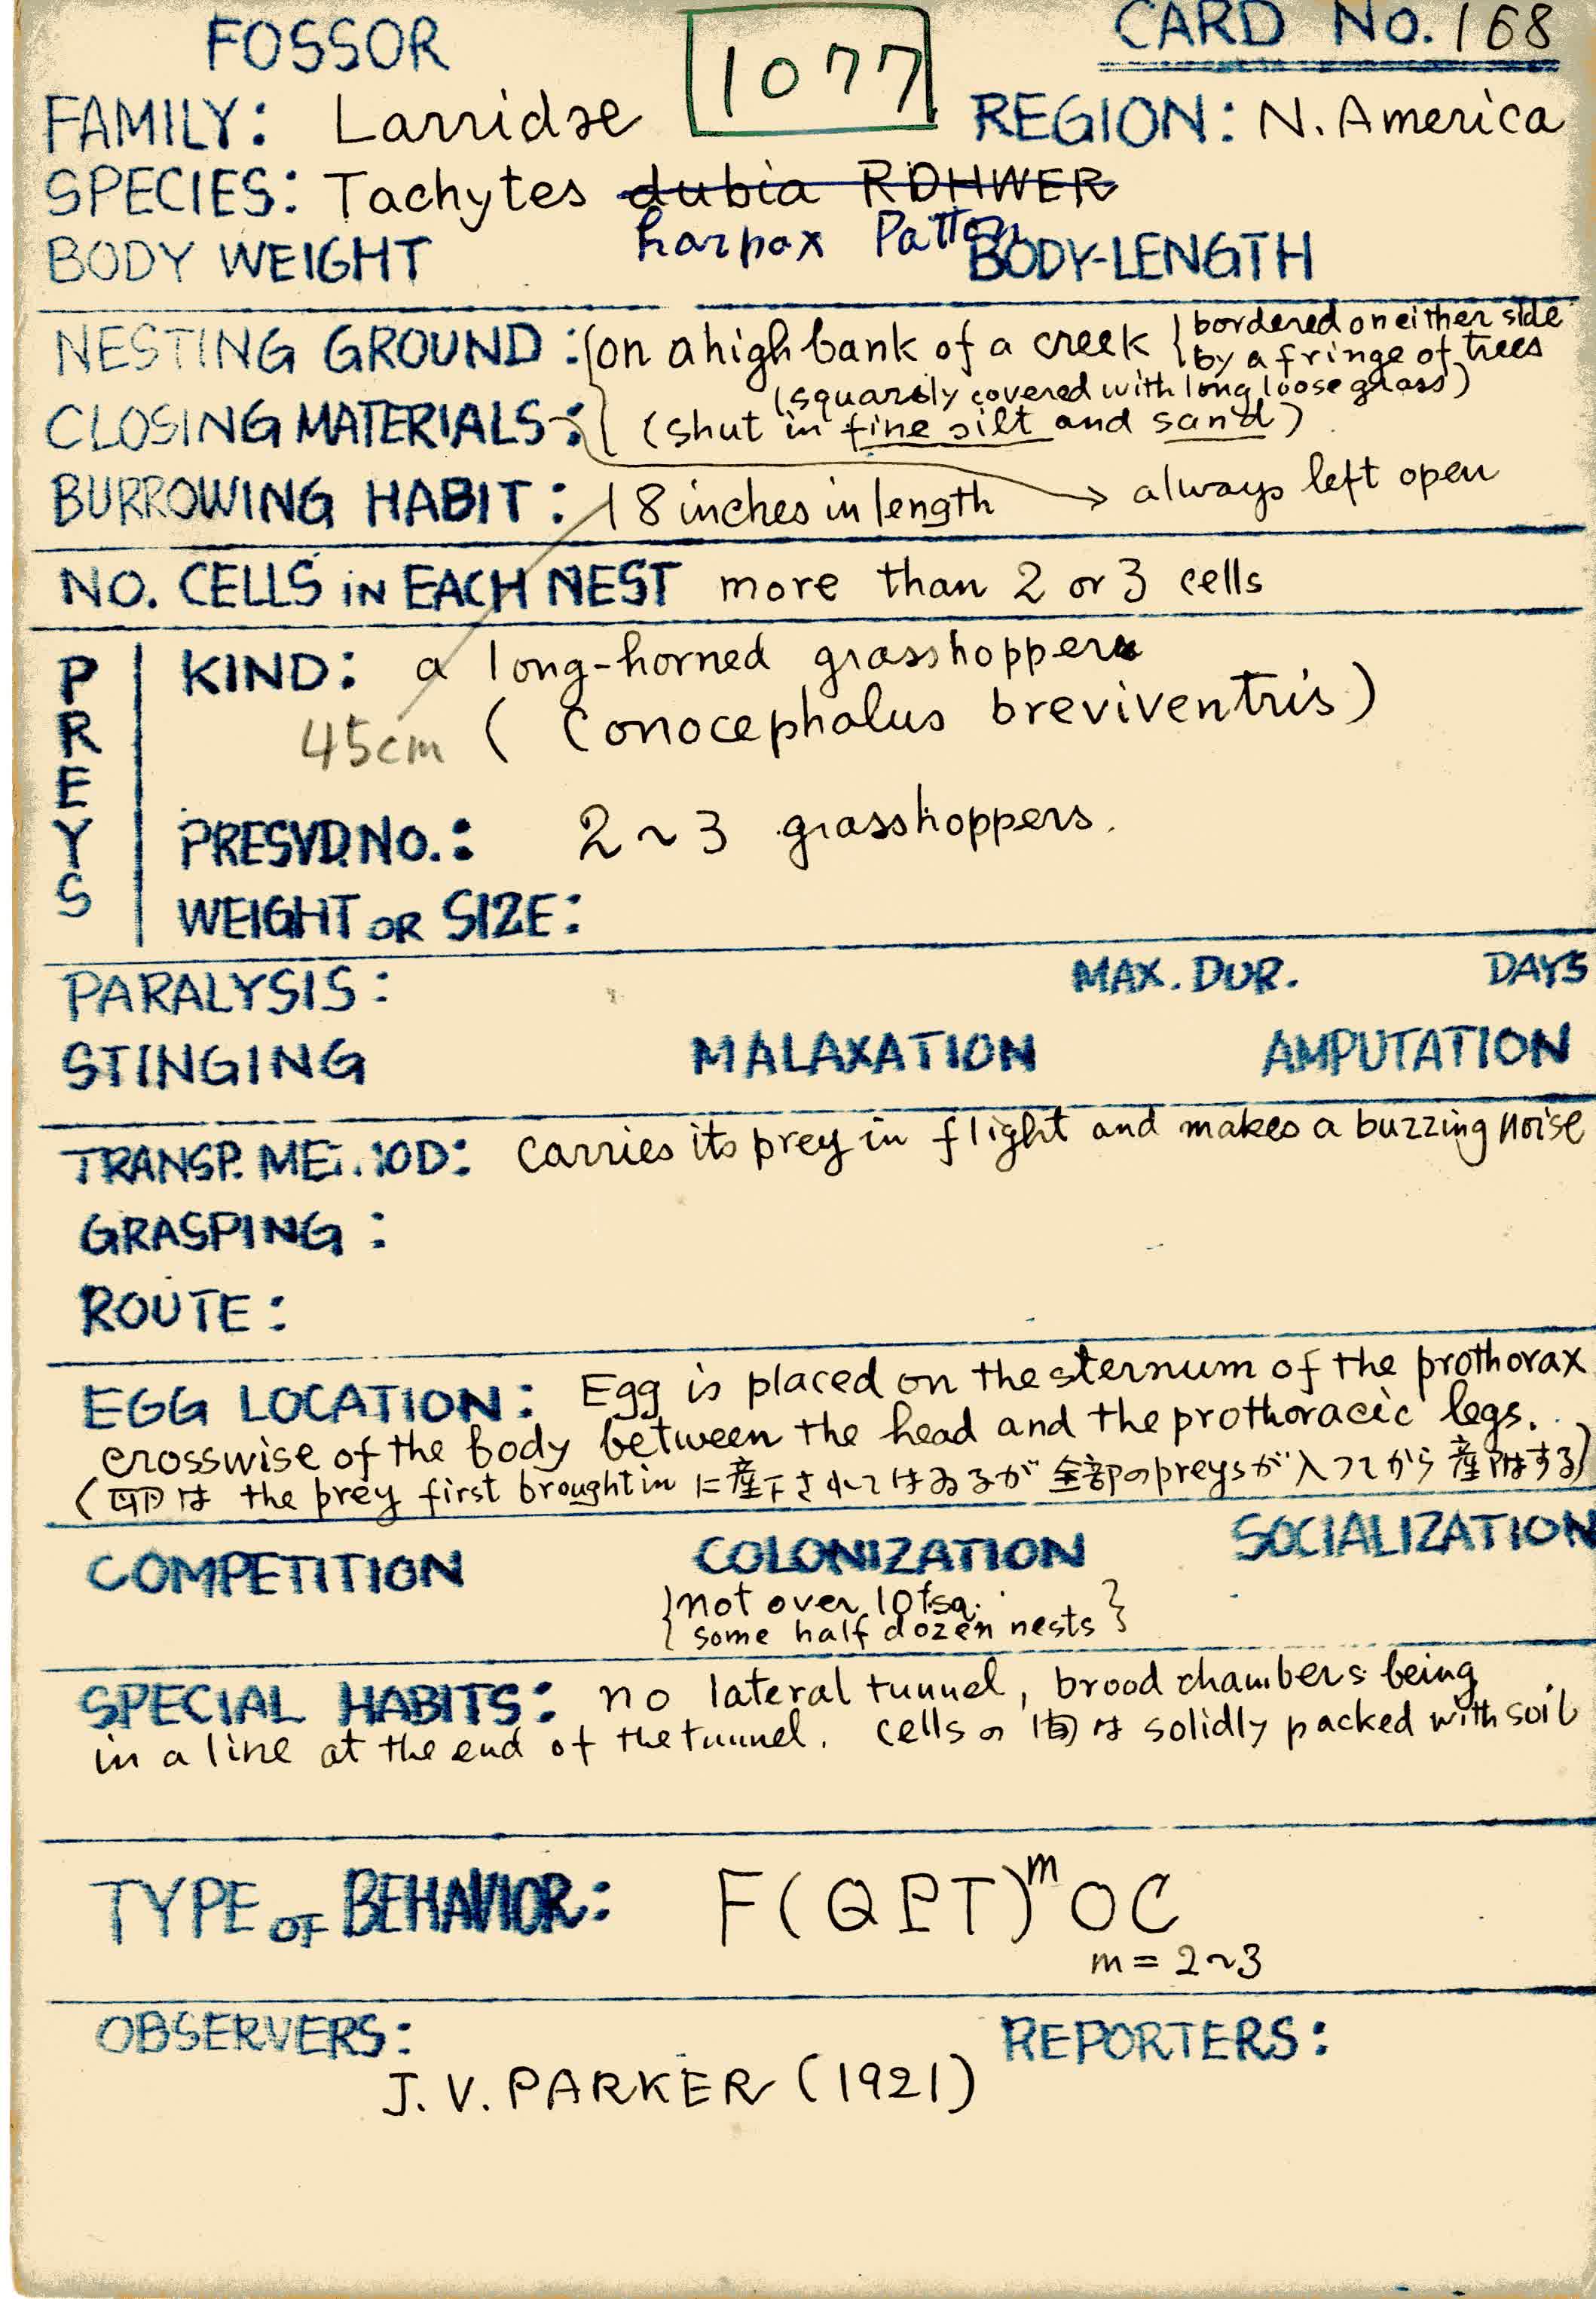 FOSSOR 1077 CARD No. 168
FAMILY: Larridae REGION: N. America
SPECIES: Tachytes dubia ROHWER
harpax Patton
BODY WEIGHT BODY-LENGTH
NESTING GROUND: on a high bank of a creek bordered on either side
by a fringe of trees
(squarsly covered with long loose grass)
CLOSING MATERIALS: (shut in fine silt and sand)
always left open
BURROWING HABIT: 18 inches in length
NO. CELLS IN EACH NEST more than 2 or 3 cells
PREYS
KIND: a long-horned grasshopper
45cm (Conocephalus breviventris)
PRESVD. NO.: 2~3 grasshoppers.
WEIGHT OR SIZE:
PARALYSIS: MAX. DUR. DAYS
STINGING MALAXATION AMPUTATION
TRANSP. ME..OD: carries its prey in flight and makes a buzzing noise
GRASPING:
ROUTE:
EGG LOCATION: Egg is placed on the sternum of the prothorax
crosswise of the body between the head and the prothoracic legs.
(卵は the prey first brought in に産下されてはゐるが 全部のpreysが入つてから産卵する)
COMPETITION COLONIZATION SOCIALIZATION
not over 10 fsq.
some half dozen nests
SPECIAL HABITS: no lateral tunnel, brood chambers being
in a line at the end of the tunnel. cells の間は solidly packed with soil
TYPE OF BEHAVIOR: F(QPT)ᵐOC
m = 2~3
OBSERVERS: REPORTERS:
J. V. PARKER (1921)